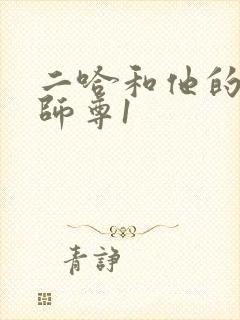 二哈和他的
師尊1
青諍